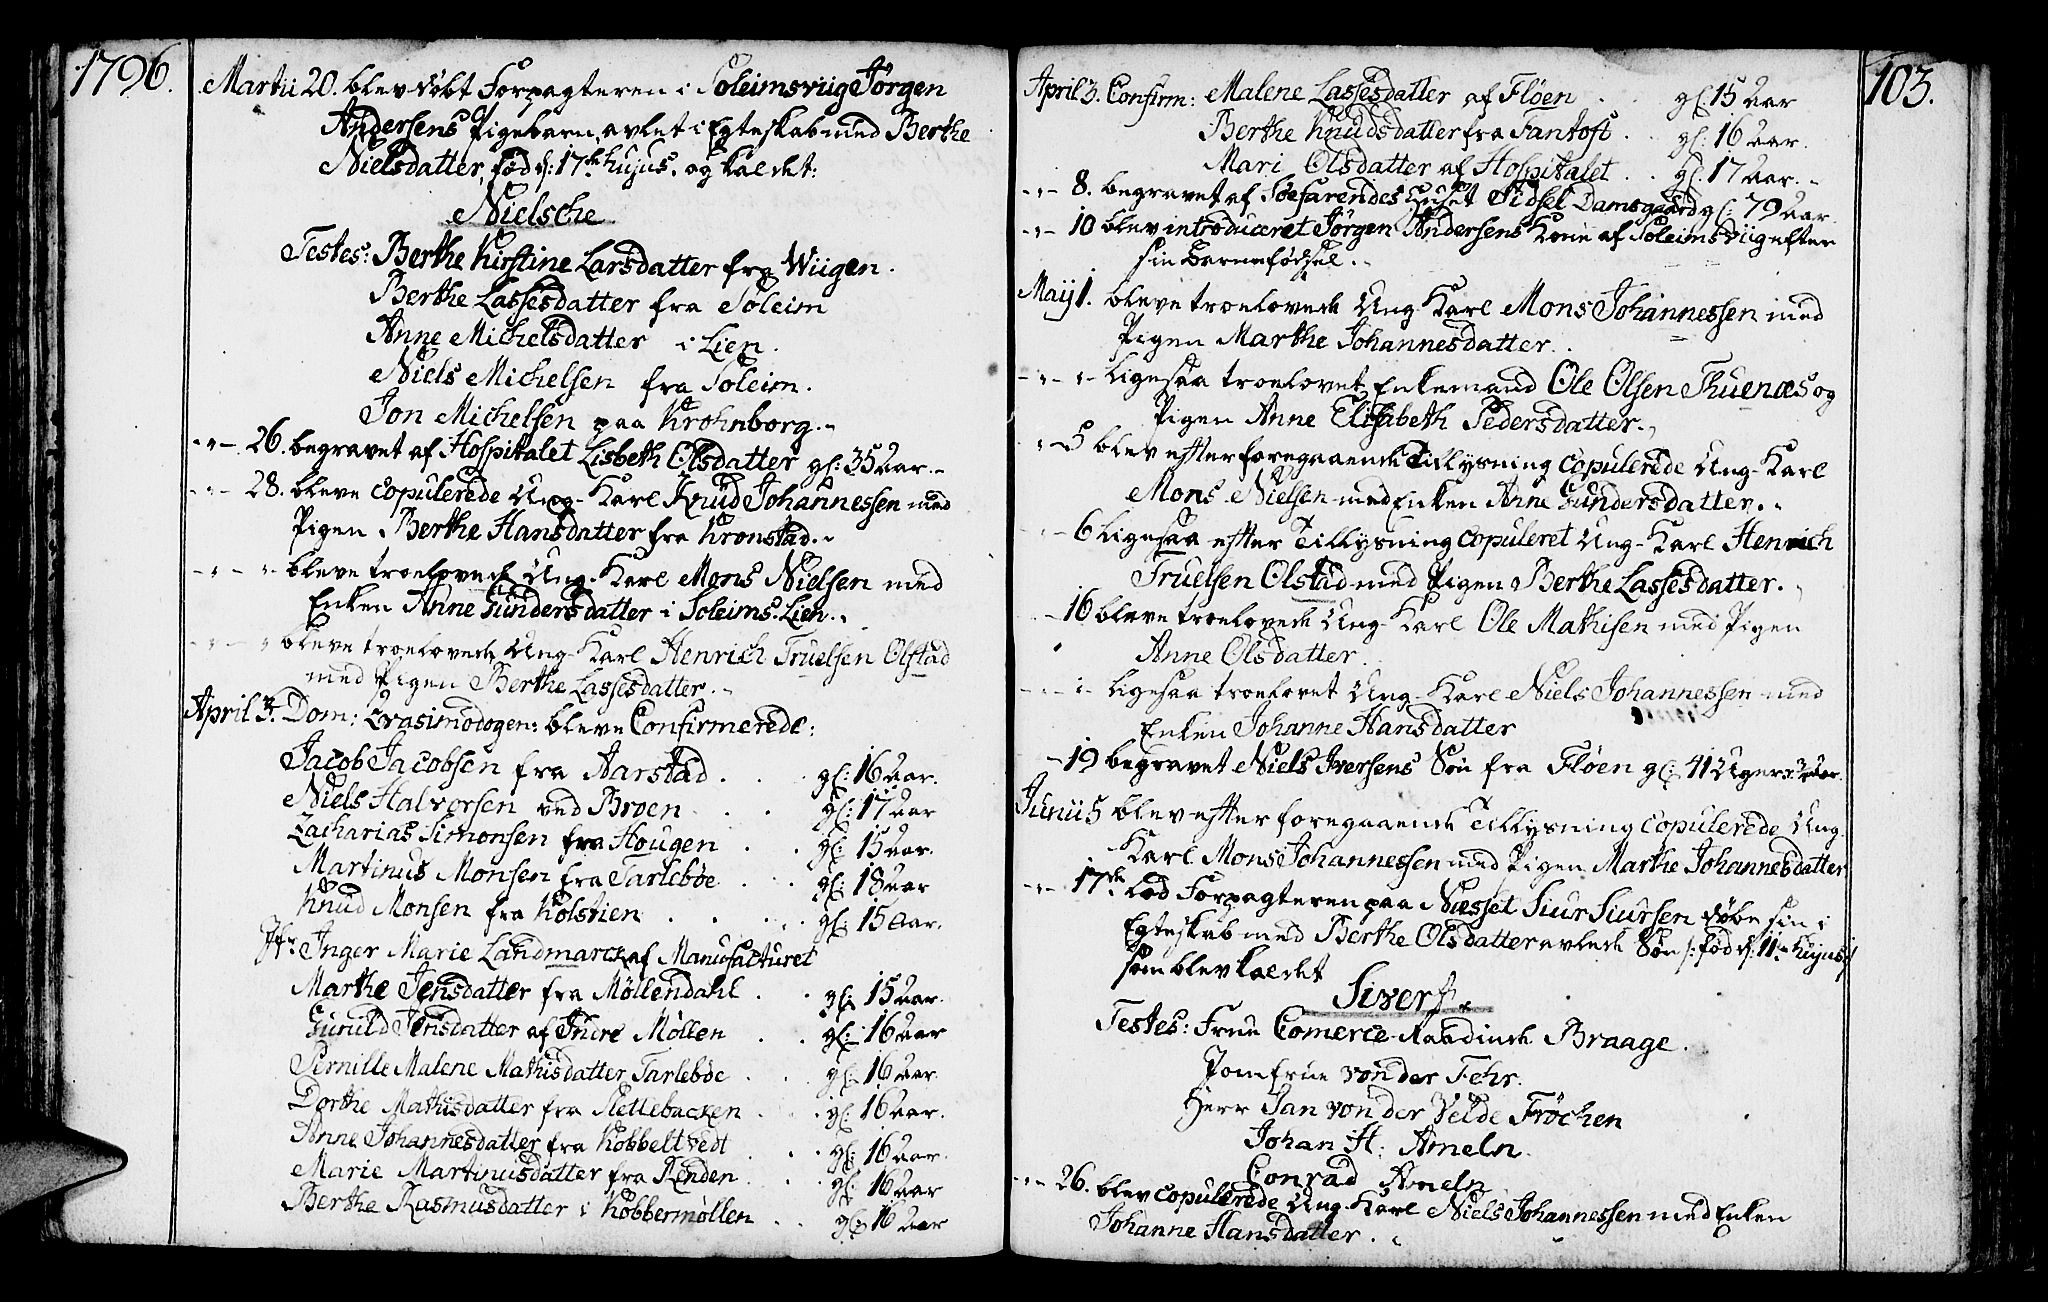 1796.
Martii 20. blev døbt Forpagteren i Soleimsviig Jørgen
Andersens Pigebarn, avlet i Egteskab med Berthe
Nielsdatter, fød d: 17de hujus, og kaldet:
Nielsche
Testes: Berthe Kirstine Larsdatter fra Wiigen.
Berthe Lassesdatter fra Soleim
Anne Michelsdatter i Lien.
Niels Michelsen fra Soleim.
Jon Michelsen paa Krohnborg.
-"- 26. begravet af Hospitalet Lisbeth Olsdatter gl: 35 Aar.
-"- 28. bleve copulerede Ung-Karl Knud Johannessen med
Pigen Berthe Hansdatter fra Kronstad.
-"- " bleve troelovede Ung-Karl Mons Nielsen med
Enken Anne Gundersdatter i Soleims-Lien.
-"- " bleve troelovede Ung-Karl Henrich Truelsen Olstad
med Pigen Berthe Lassesdatter.
April 3. Dom: Qvasimodogen: bleve Confirmerede:
Jacob Jacobsen fra Aarstad . . . gl: 16 Aar.
Niels Halvorsen ved Broen . . gl: 17 Aar
Zacharias Simonsen fra Hougen . . gl: 15 Aar.
Martinus Monsen fra Tarlebøe . . gl: 18 Aar
Knud Monsen fra Kolstien . . . gl: 15 Aar.
Jfr Inger Marie Landmarck af Manufacturet
Marthe Jensdatter fra Møllendahl . . gl: 15 Aar.
Gunild Jensdatter af Indre Møllen . . gl: 16 Aar
Pernille Malene Mathisdatter Tarlebøe . . gl: 16 Aar.
Dorthe Mathisdatter fra Slettebacken . . gl: 16 Aar.
Anne Johannesdatter fra Kobbeltvedt . . gl: 16 Aar.
Marie Martinusdatter fra Lenden . . gl: 16 Aar
Berthe Rasmusdatter i Kobbermøllen . . gl: 16 Aar
103.
April 3. Confirm: Malene Lassesdatter af Fløen . . gl: 15 Aar
Berthe Knudsdatter fra Fantoft . . gl: 16 Aar.
Mari Olsdatter af Hospitalet . . gl. 17 Aar.
-"- 8. begravet af Søefarendes Huset Sidsel Damsgaard gl: 79 Aar.
-"- 10 blev introduceret Jørgen Andersens Kone af Soleimsviig efter
sin Barnefødsel.
Maij 1. bleve troelovede Ung-Karl Mons Johannessen med
Pigen Marthe Johannesdatter.
-"- " Ligesaa troelovet Enkemand Ole Olsen Thuenæs og
Pigen Anne Elisabeth Pedersdatter.
" 5 blev efter foregaaende Tillysning copulerede Ung-Karl
Mons Nielsen med Enken Anne Gundersdatter.
- 6 Ligesaa efter Tillysning copuleret Ung-Karl Henrich
Truelsen Olstad med Pigen Berthe Lassesdatter.
- 16 bleve troelovede Ung-Karl Ole Mathisen med Pigen
Anne Olsdatter.
- " - Ligesaa troelovet Ung-Karl Niels Johannessen med
Enken Johanne Hansdatter
- 19 begravet Niels Iversens Søn fra Fløen gl: 41 Uger
Junii 5 blev efter foregaaende Tillysning copulerede Ung-
Karl Mons Johannessen med Pigen Marthe Johannesdatter
-"- 17de Lod Forpagteren paa Næsset Siur Siursen døbe sin i
Egteskab med Berthe Olsdatter avlede Søn /: fød d: 11te hujus :/
som blev kaldet
Sivert.
Testes: Frue Comerce-Raadinde Braage.
Jomfrue von der Fehr.
Herr Jan von der Velde Frøchen
Johan H: Ameln.
Conrad Ameln
-"- 26. blev copulerede Ung-Karl Niels Johannessen med Enken
Johanne Hansdatter.